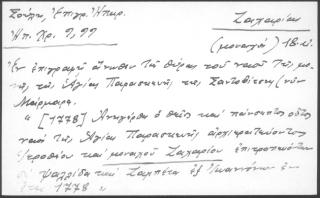 Σούλη, Ἐπιγρ. Ἠπειρ.
Ἠπ. Χρ. 9, 99
Ζαχαρίας
(μοναχὸς) 18 αἰ.
Ἐν ἐπιγραφῇ ἄνωθεν τῆς θύρας τοῦ ναοῦ τῆς μο-
νῆς τῆς Ἁγίας Παρασκευῆς τῆς (νῦν
Μάρμαρα.
" [1778] Ἀνηγέρθη ὁ θεῖος καὶ πάνσεπτος οὗτος
ναὸς τῆς Ἁγίας Παρασκευῆς ἀρχιερατεύοντος
Ἱεροθέου καὶ μοναχοῦ Ζαχαρίου ἐπιτροπεύοντος
ψαλρίδα καὶ Ζαμπέτα ἐξ Ἰωαννίνων ἐν
ἔτει 1778 "